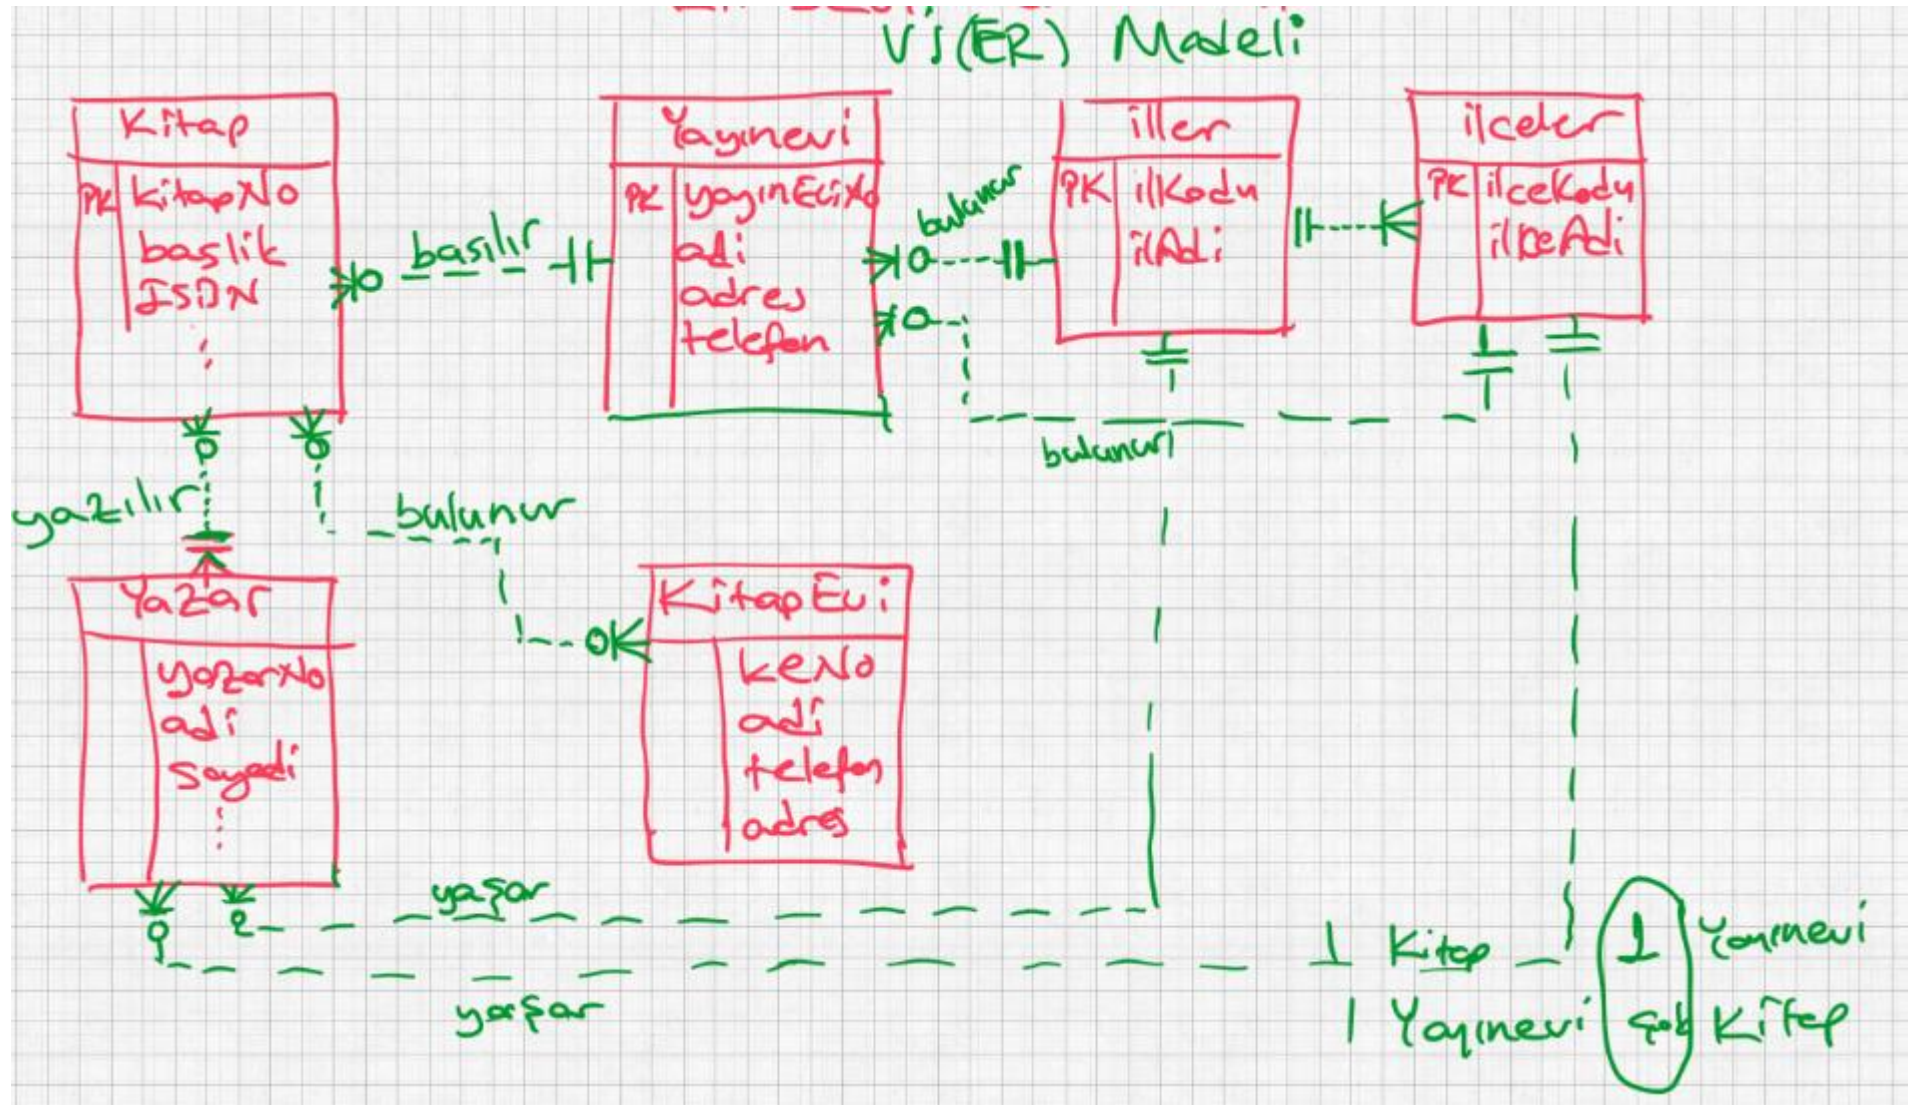 Vİ(ER) Modeli
Kitap
PK kitapNo
baslik
ISBN
basılır
Yayınevi
PK yayınEviNo
adi
adres
telefon
bulunur
iller
PK ilKodu
ilAdi
ilceler
PK ilceKodu
ilçeAdi
bulunur
yazılır
bulunur
Yazar
yazarNo
adi
Soyadi
KitapEvi
keNo
adi
telefon
adres
yaşar
yaşar
1 Kitap 1 Yayınevi
1 Yayınevi çok Kitap